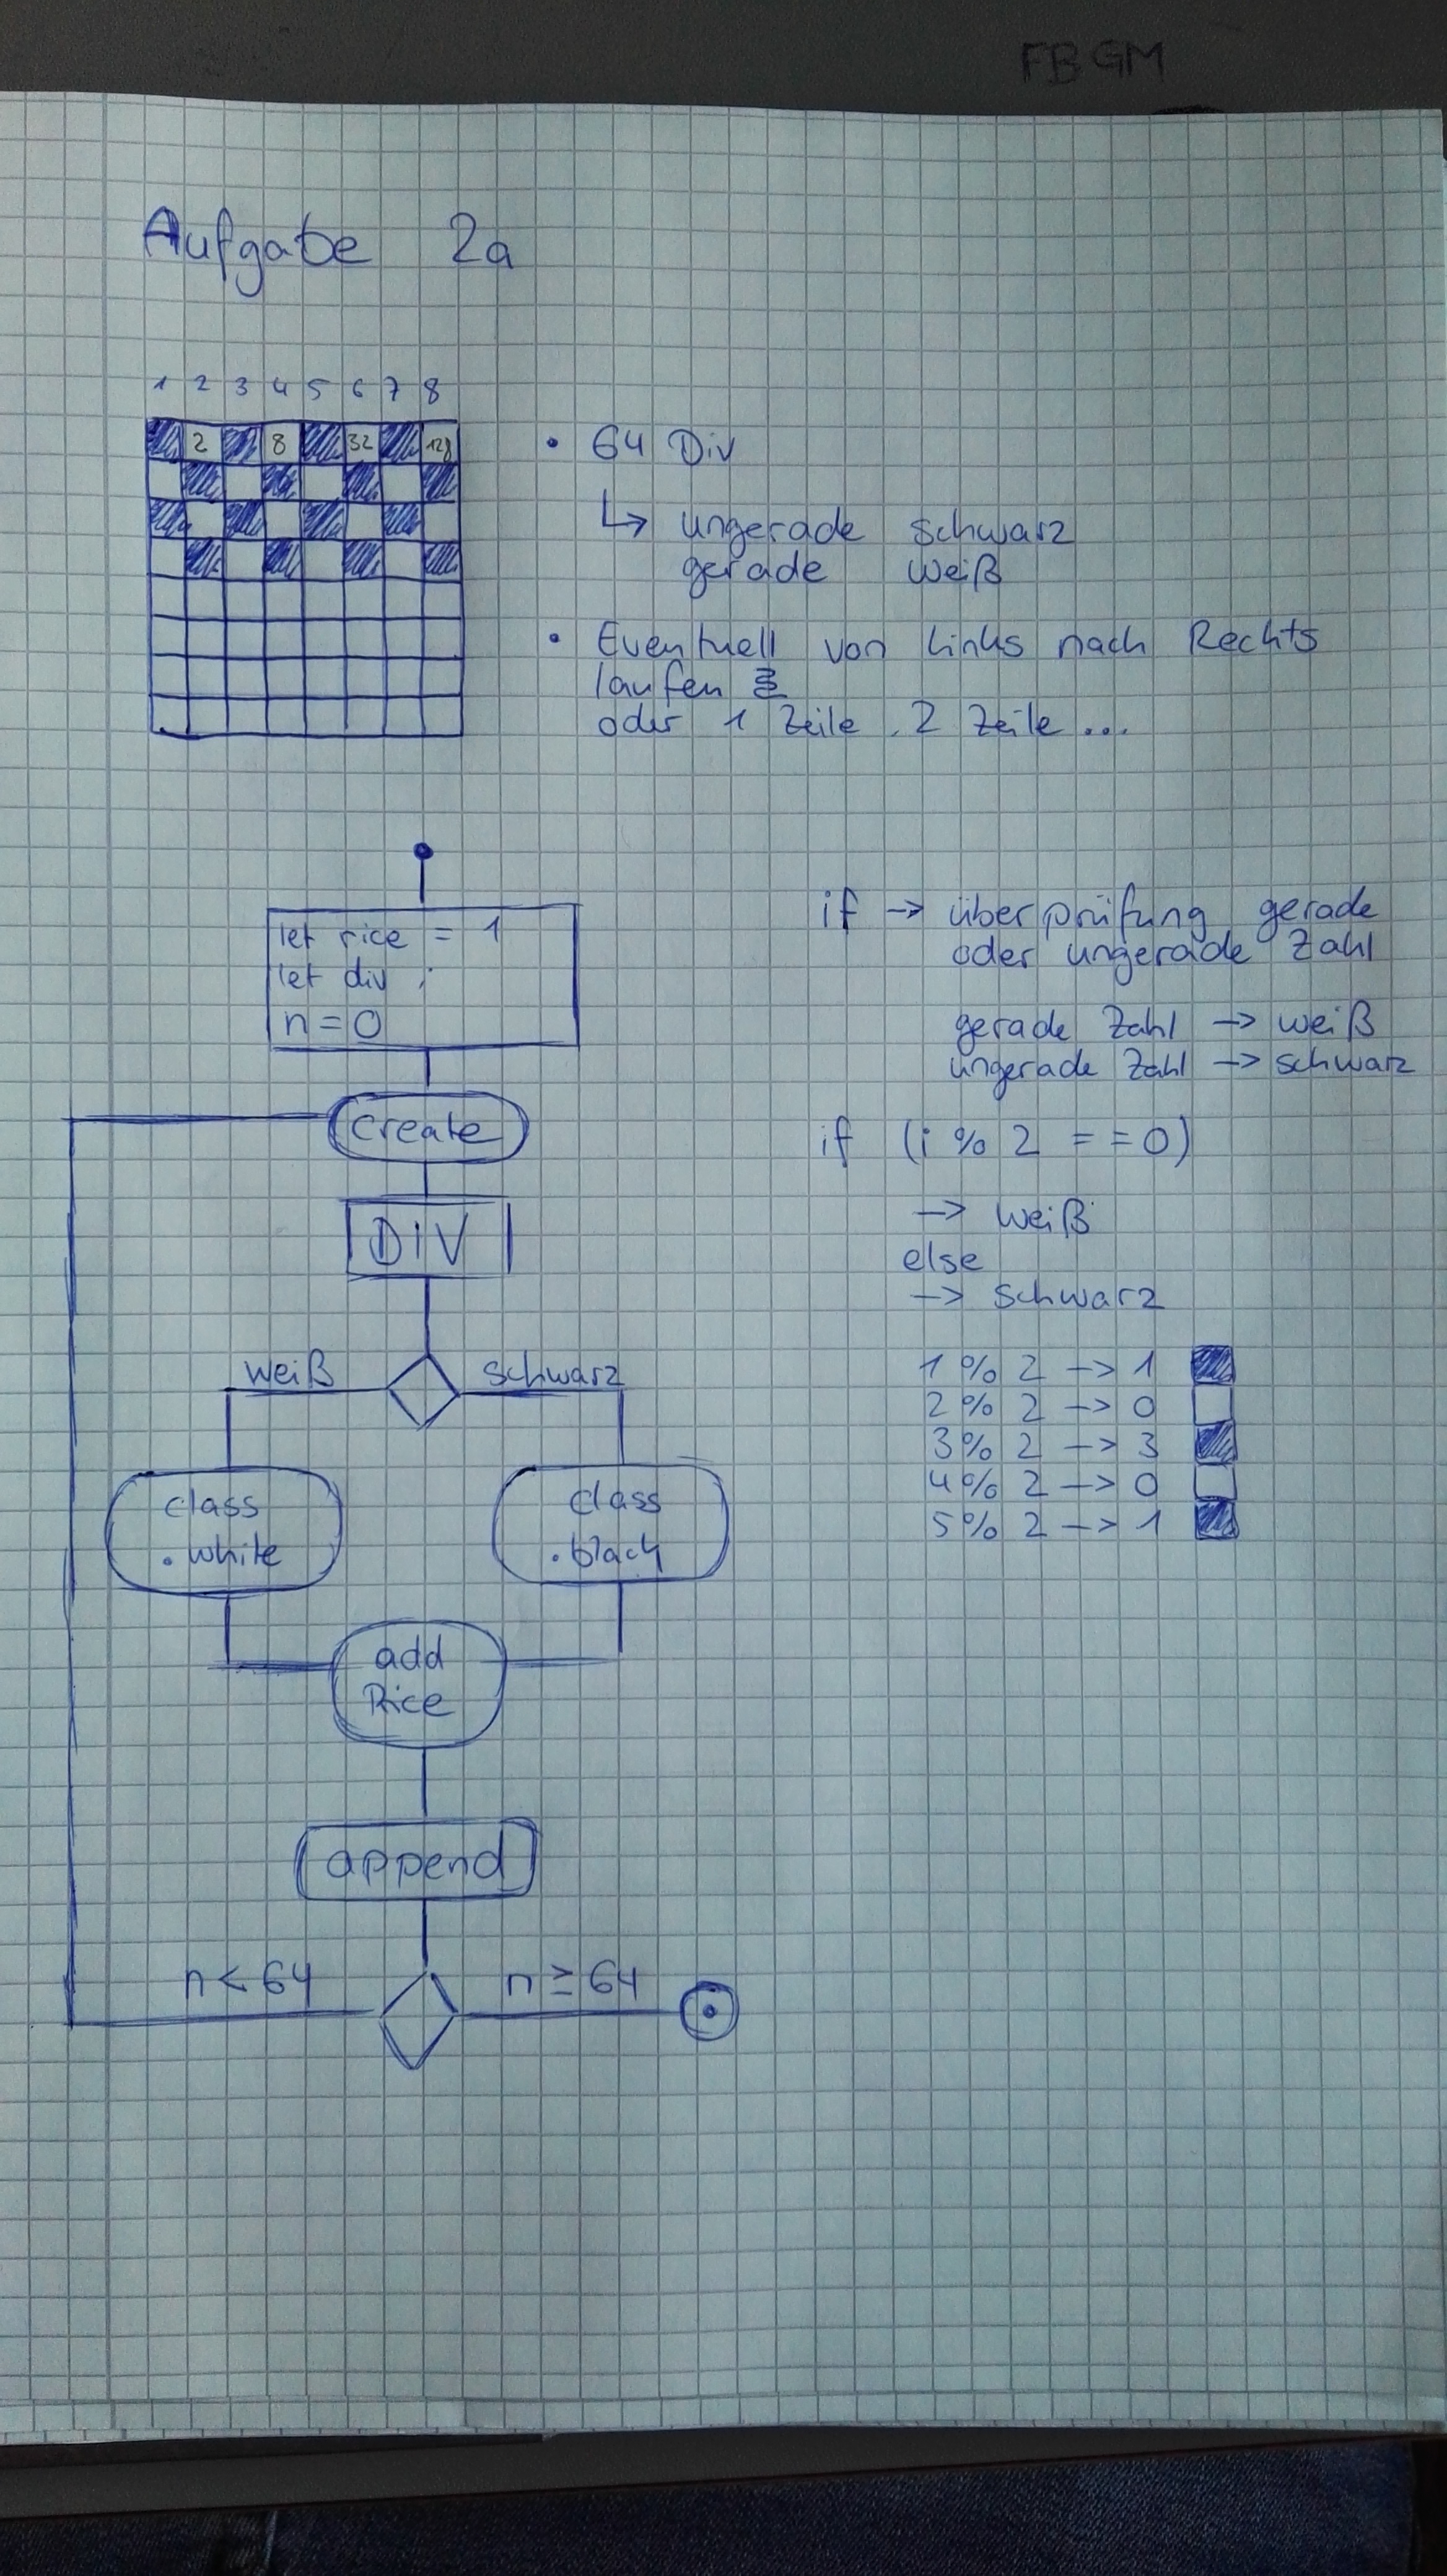 FBGM
Aufgabe 2a
1 2 3 4 5 6 7 8
2 8 32 128
• 64 Div
↳ ungerade schwarz
gerade weiß
• Eventuell von Links nach Rechts
laufen
oder 1 Zeile, 2 Zeile ...
let rice = 1
let div ;
n = 0
create
DIV
weiß schwarz
class
.white
class
.black
add
Rice
append
n < 64 n ≥ 64
if -> überprüfung gerade
oder ungerade Zahl
gerade Zahl -> weiß
ungerade Zahl -> schwarz
if (i % 2 = = 0)
-> weiß
else
-> schwarz
1 % 2 -> 1
2 % 2 -> 0
3 % 2 -> 3
4 % 2 -> 0
5 % 2 -> 1